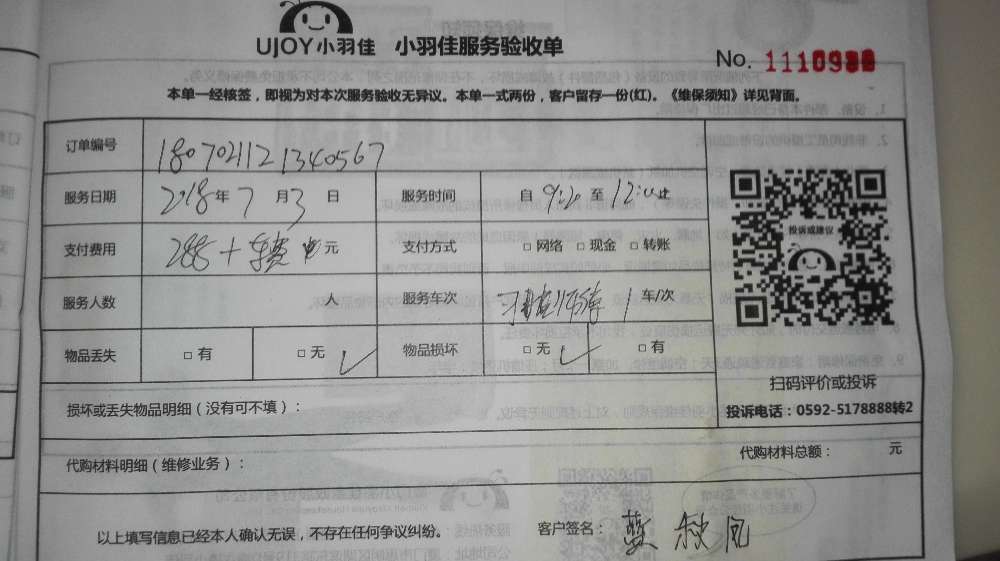 UJOY小羽佳 小羽佳服务验收单
No. 1110938
本单一经核签，即视为对本次服务验收无异议。本单一式两份，客户留存一份(红)。《维保须知》详见背面。
订单编号 1807021121340567
服务日期 2018年7月3日 服务时间 自9:20至12:
支付费用 288+ 元 支付方式 □网络 □现金 □转账
服务人数 人 服务车次 师傅 1 车/次
物品丢失 □有 □无 ✓ 物品损坏 □无 ✓ □有
投诉或建议
扫码评价或投诉
投诉电话：0592-5178888转2
损坏或丢失物品明细（没有可不填）：
代购材料明细（维修业务）： 代购材料总额： 元
以上填写信息已经本人确认无误，不存在任何争议纠纷。 客户签名： 蓝秋凤